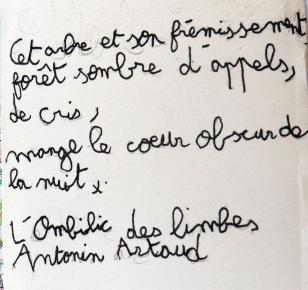 Cet arbre et son frémissement
forêt sombre d'appels,
de cris,
mange le coeur obscur de
la nuit x.
L'Ombilic des limbes
Antonin Artaud